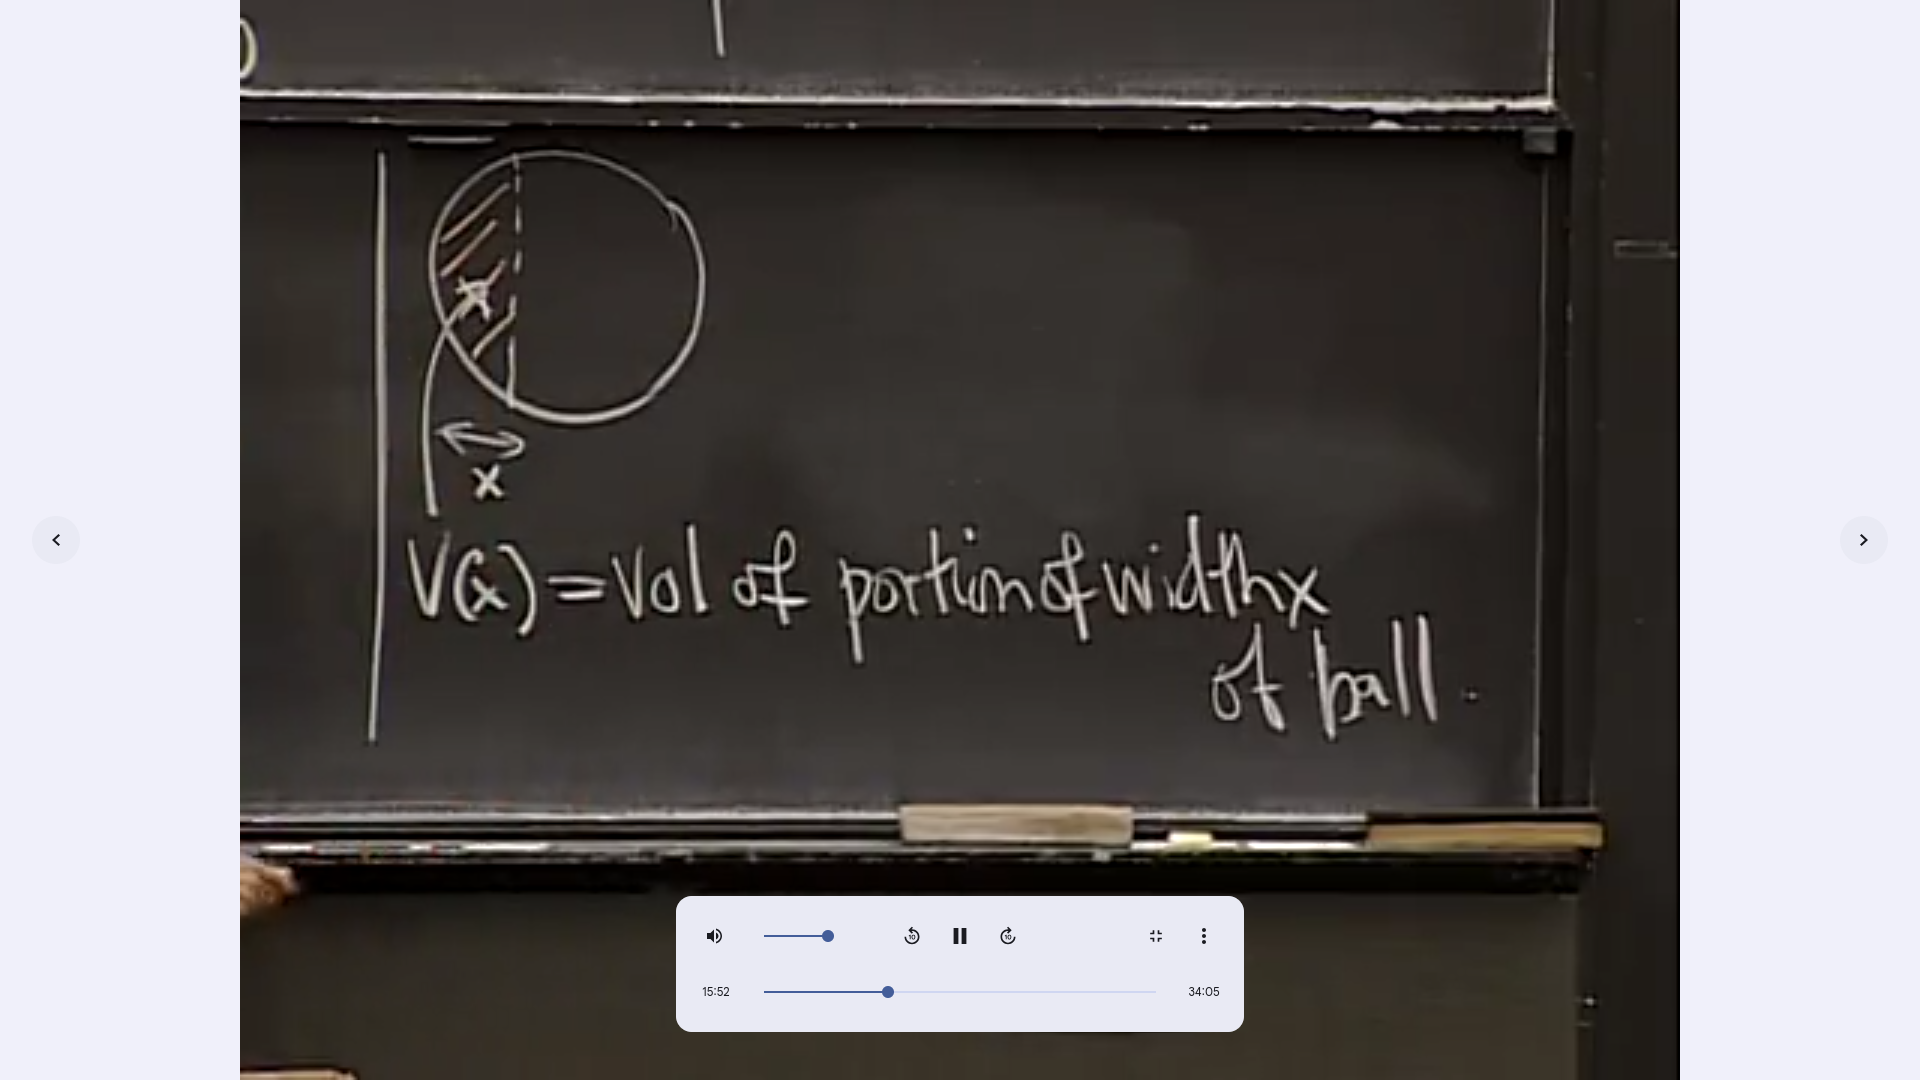 x
V(x) = Vol of portion of width x
of ball.
10
10
15:52
34:05